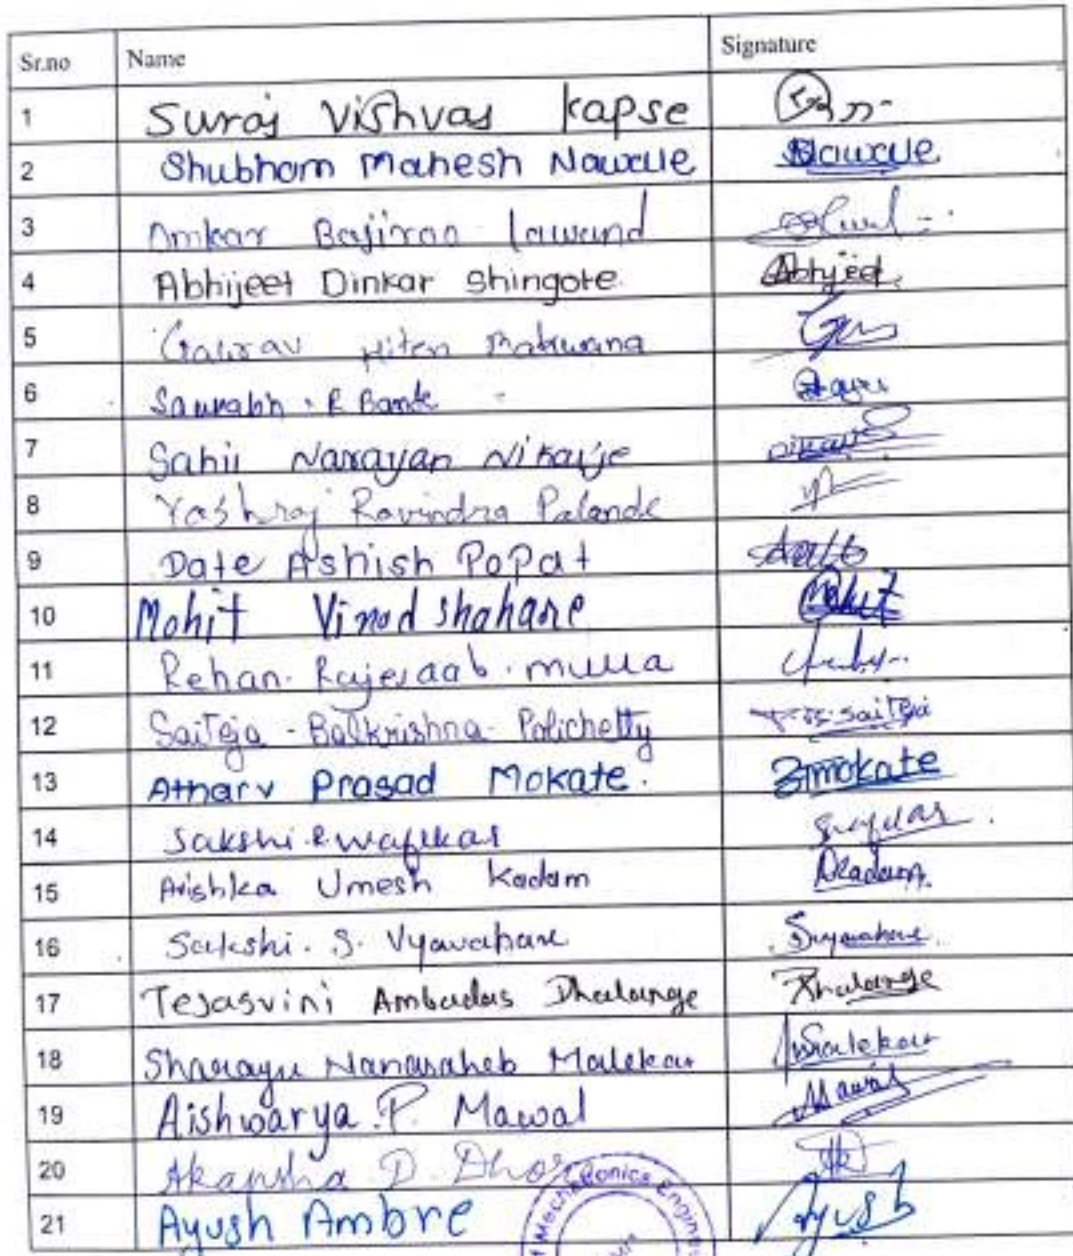 Sr.no Name Signature
1 Suraj Vishvas kapse
2 Shubham Mahesh Nawale Nawale
3 Omkar Bajirao Lawand
4 Abhijeet Dinkar Shingote. Abhijeet.
5 Gaurav Hiten Makwana
6 Saurabh . R Bante
7 Sahil Narayan Nikalje
8 Yashraj Ravindra Palande
9 Date Ashish Popat
10 Mohit Vinod shahare Mohit
11 Rehan. Rajesaab. mulla
12 SaiTeja - Balkrishna - Polichetty SaiTeja
13 Atharv Prasad Mokate. mokate
14 Sakshi.R.Wafikar
15 Arishka Umesh Kadam AKadam.
16 Sakshi. S. Vyawahare Svyawahare.
17 Tejasvini Ambadas Dhalange Dhalange
18 Sharayu Nanasaheb Malekar Malekar
19 Aishwarya.P. Mawal Mawal
20 Akansha D. Dhor
21 Ayush Ambre Ayush
Mechatronics Engineer